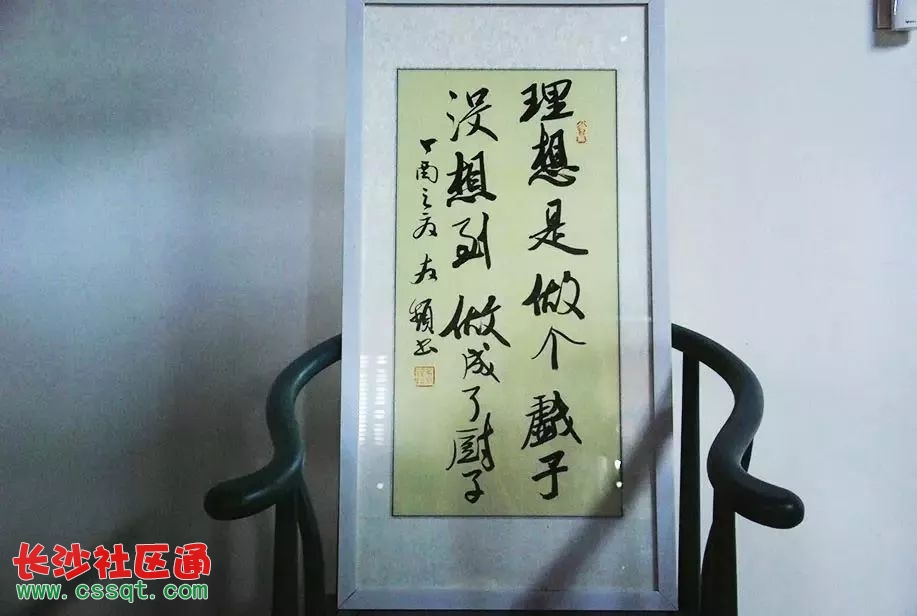 理想是做个戲子
没想到做成了厨子
丁酉之夜友頴书
长沙社区通
www.cssqt.com